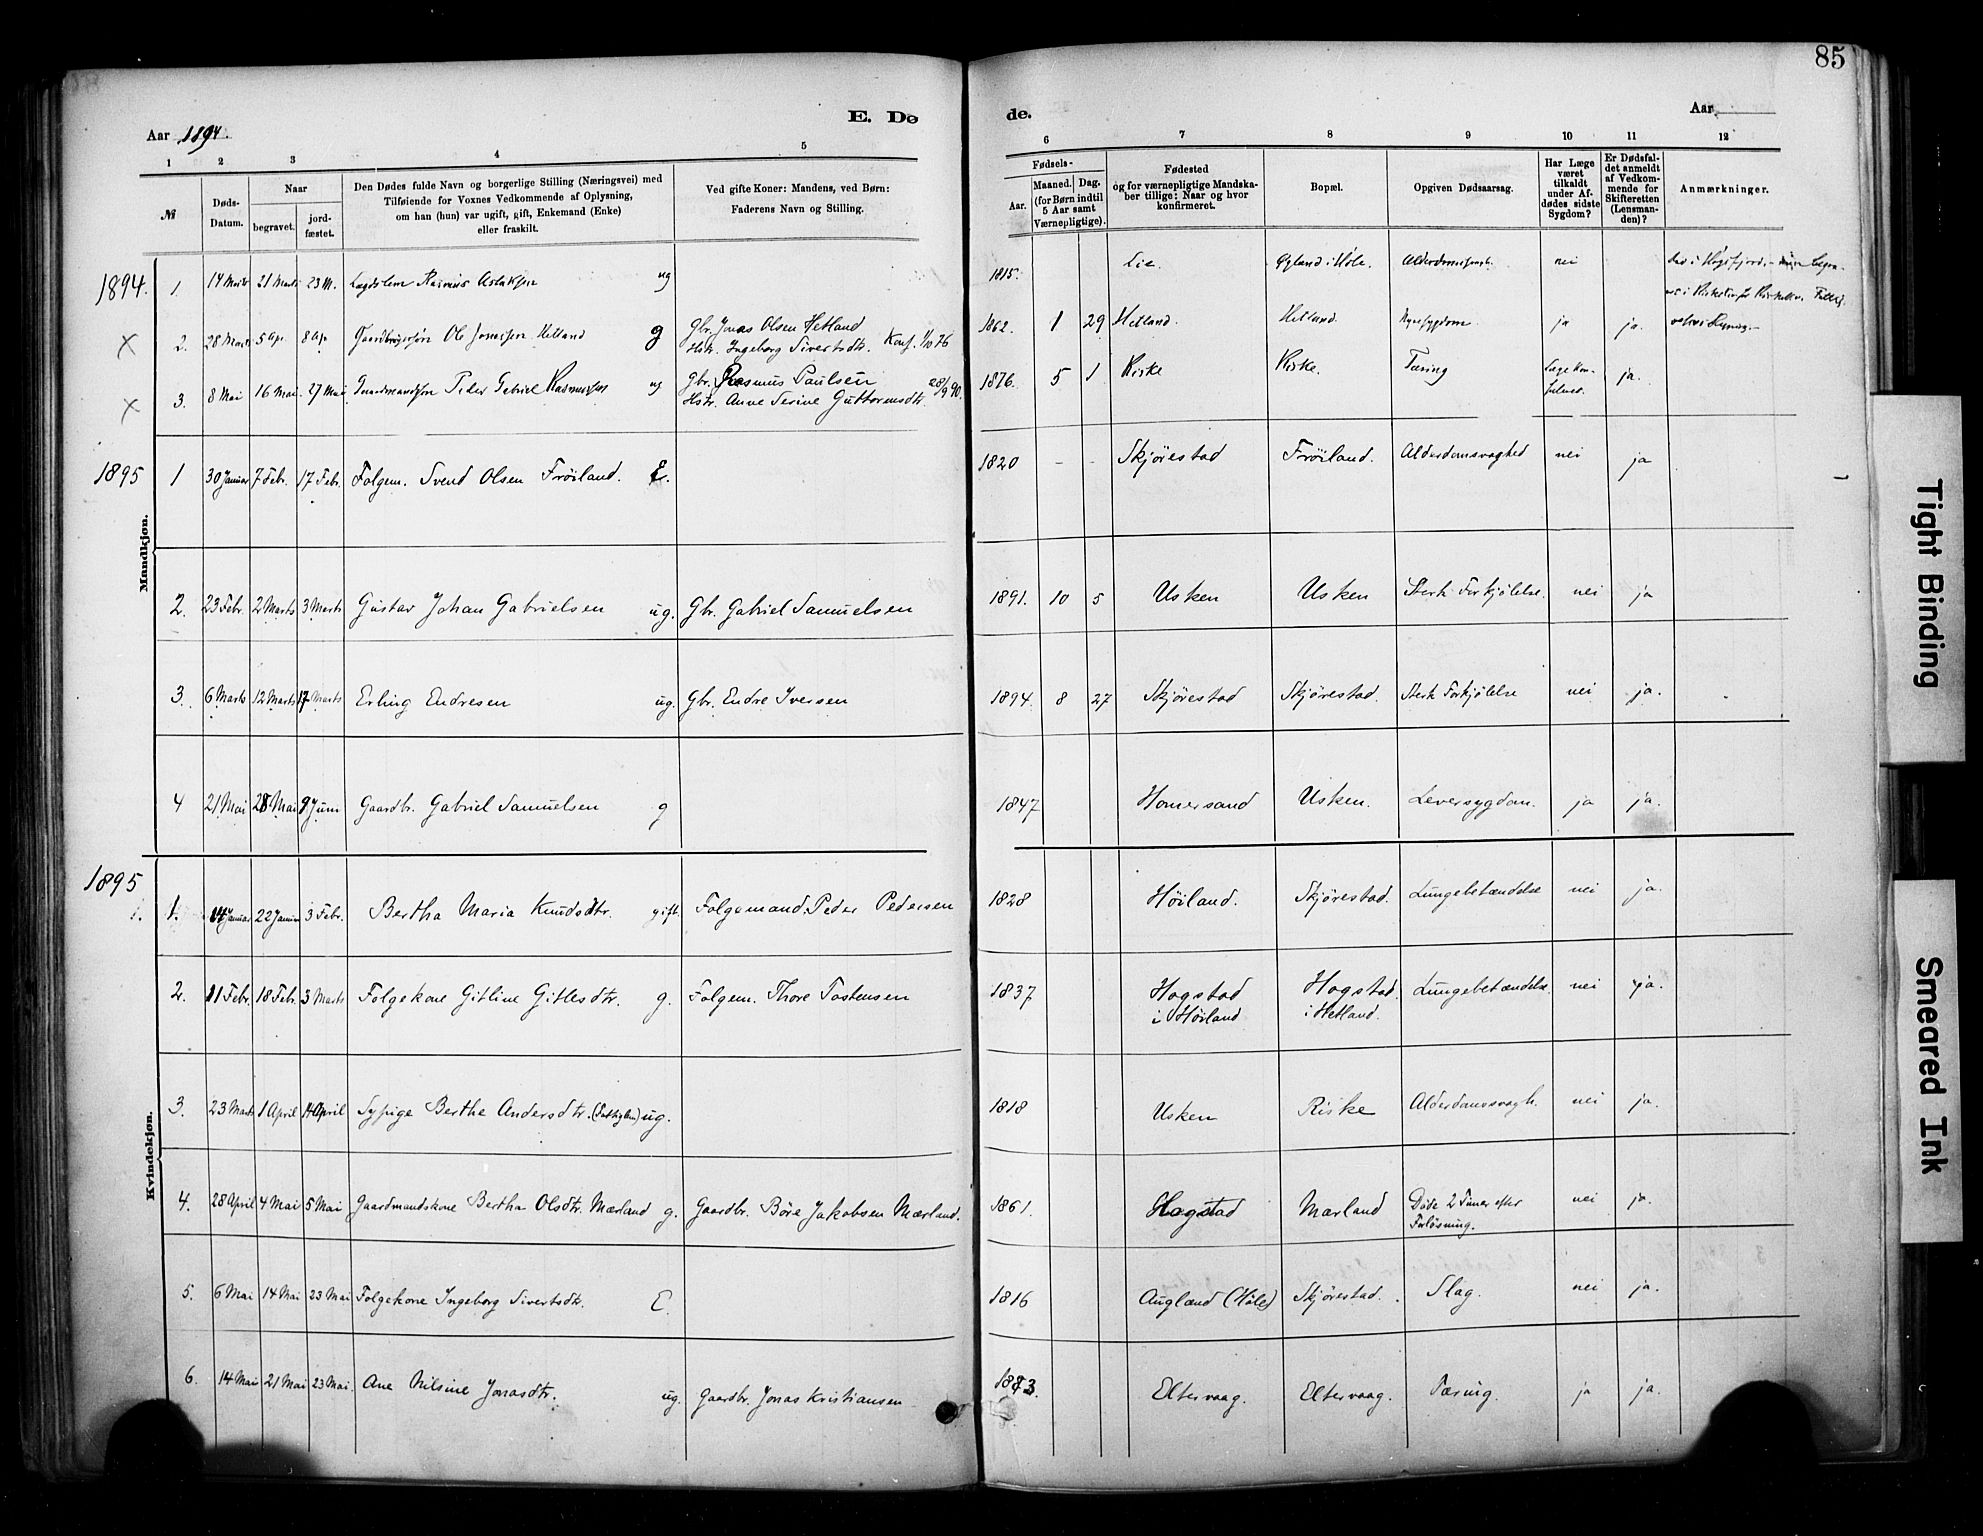 85
E. Dø de.
Aar 1894.
Aar
1 2 3 4 5 6 7 8 9 10 11 12
№
Døds-Datum.
Naar
begravet.
jord-fæstet.
Den Dødes fulde Navn og borgerlige Stilling (Næringsvei) med
Tilføiende for Voxnes Vedkommende af Oplysning,
om han (hun) var ugift, gift, Enkemand (Enke)
eller fraskilt.
Ved gifte Koner: Mandens, ved Børn:
Faderens Navn og Stilling.
Fødsels-
Aar.
Maaned. Dag.
(for Børn indtil
5 Aar samt
Værnepligtige).
Fødested
og for værnepligtige Mandska-
ber tillige: Naar og hvor
konfirmeret.
Bopæl.
Opgiven Dødsaarsag.
Har Læge
været
tilkaldt
under Af-
dødes sidste
Sygdom?
Er Dødsfal-
det anmeldt
af Vedkom-
mende for
Skifteretten
(Lensman-
den)?
Anmærkninger.
Mandkjøn.
1894. 1. 14 Marts 21 Marts 23 M. Lægdslem Rasmus Aslaksen ug 1815. Lie. Høle. nei
2. 28 Marts 5 Apr. 8 Ap. Ole Jonassen Hetland g Gbr. Jonas Olsen Hetland 1862. 1 29 Hetland. Hetland. Nyresygdom ja ja.
Hstr. Ingeborg Sivertsdtr. Konf. 1/10 76
3. 8 Mai 16 Mai 27 Mai Peder Gabriel Rasmussen ug Gbr. Rasmus Paulsen 1876. 5 1 Riske Riske. Tæring ja.
Hstr. Anne Serine Guttormsdtr. 28/9 90.
1895 1 30 Januar 7 Febr. 17 Febr. Folgem. Svend Olsen Frøiland. E. 1820 - - Skjørestad Frøiland. Alderdomsvaghed nei ja
2. 23 Febr. 2 Marts 3 Marts Gustav Johan Gabrielsen ug. Gbr. Gabriel Samuelsen 1891. 10 5 Usken Usken Sterk Forkjølelse. nei ja
3. 6 Marts 12 Marts 17 Marts Erling Endresen ug. Gbr. Endre Iversen 1894. 8 27 Skjørestad Skjørestad. Sterk Forkjølelse nei ja.
4 21 Mai 28 Mai 9 Juni Gaardbr. Gabriel Samuelsen g 1847 Homersand Usken. Leversygdom. ja ja.
Kvindekjøn.
1895 1. 14 Januar 22 Januar 3 Febr. Bertha Maria Knudsdtr. gift. Folgemand. Peder Pedersen 1828 Høiland. Skjørestad. Lungebetændelse nei ja.
2. 11 Febr. 18 Febr. 3 Marts Folgekone Gitline Gitlesdtr. g. Folgem. Thore Tostensen 1837 Hogstad i Høiland Hogstad. i Hetland. Lungebetændelse. nei ja.
3. 23 Marts 1 April 14 April Sypige Berthe Andersdtr. ug. 1818 Usken Riske Alderdomsvagh. nei ja.
4. 28 April 4 Mai 5 Mai Gaardmandskone Bertha Olsdtr. Mærland g. Gaardbr. Børe Jakobsen Mærland. 1861. Hogstad Mærland Døde 2 Timer efter Forløsning. nei ja.
5. 6 Mai 14 Mai 23 Mai Folgekone Ingeborg Sivertsdtr. E. 1816 Augland (Høle) Skjørestad. Slag. nei ja.
6. 14 Mai 21 Mai 23 Mai. Ane Nilsine Jonasdtr. ug. Gaardbr. Jonas Kristiansen 1873. Eltervaag. Eltervaag. Tæring. ja ja.
Tight Binding
Smeared Ink